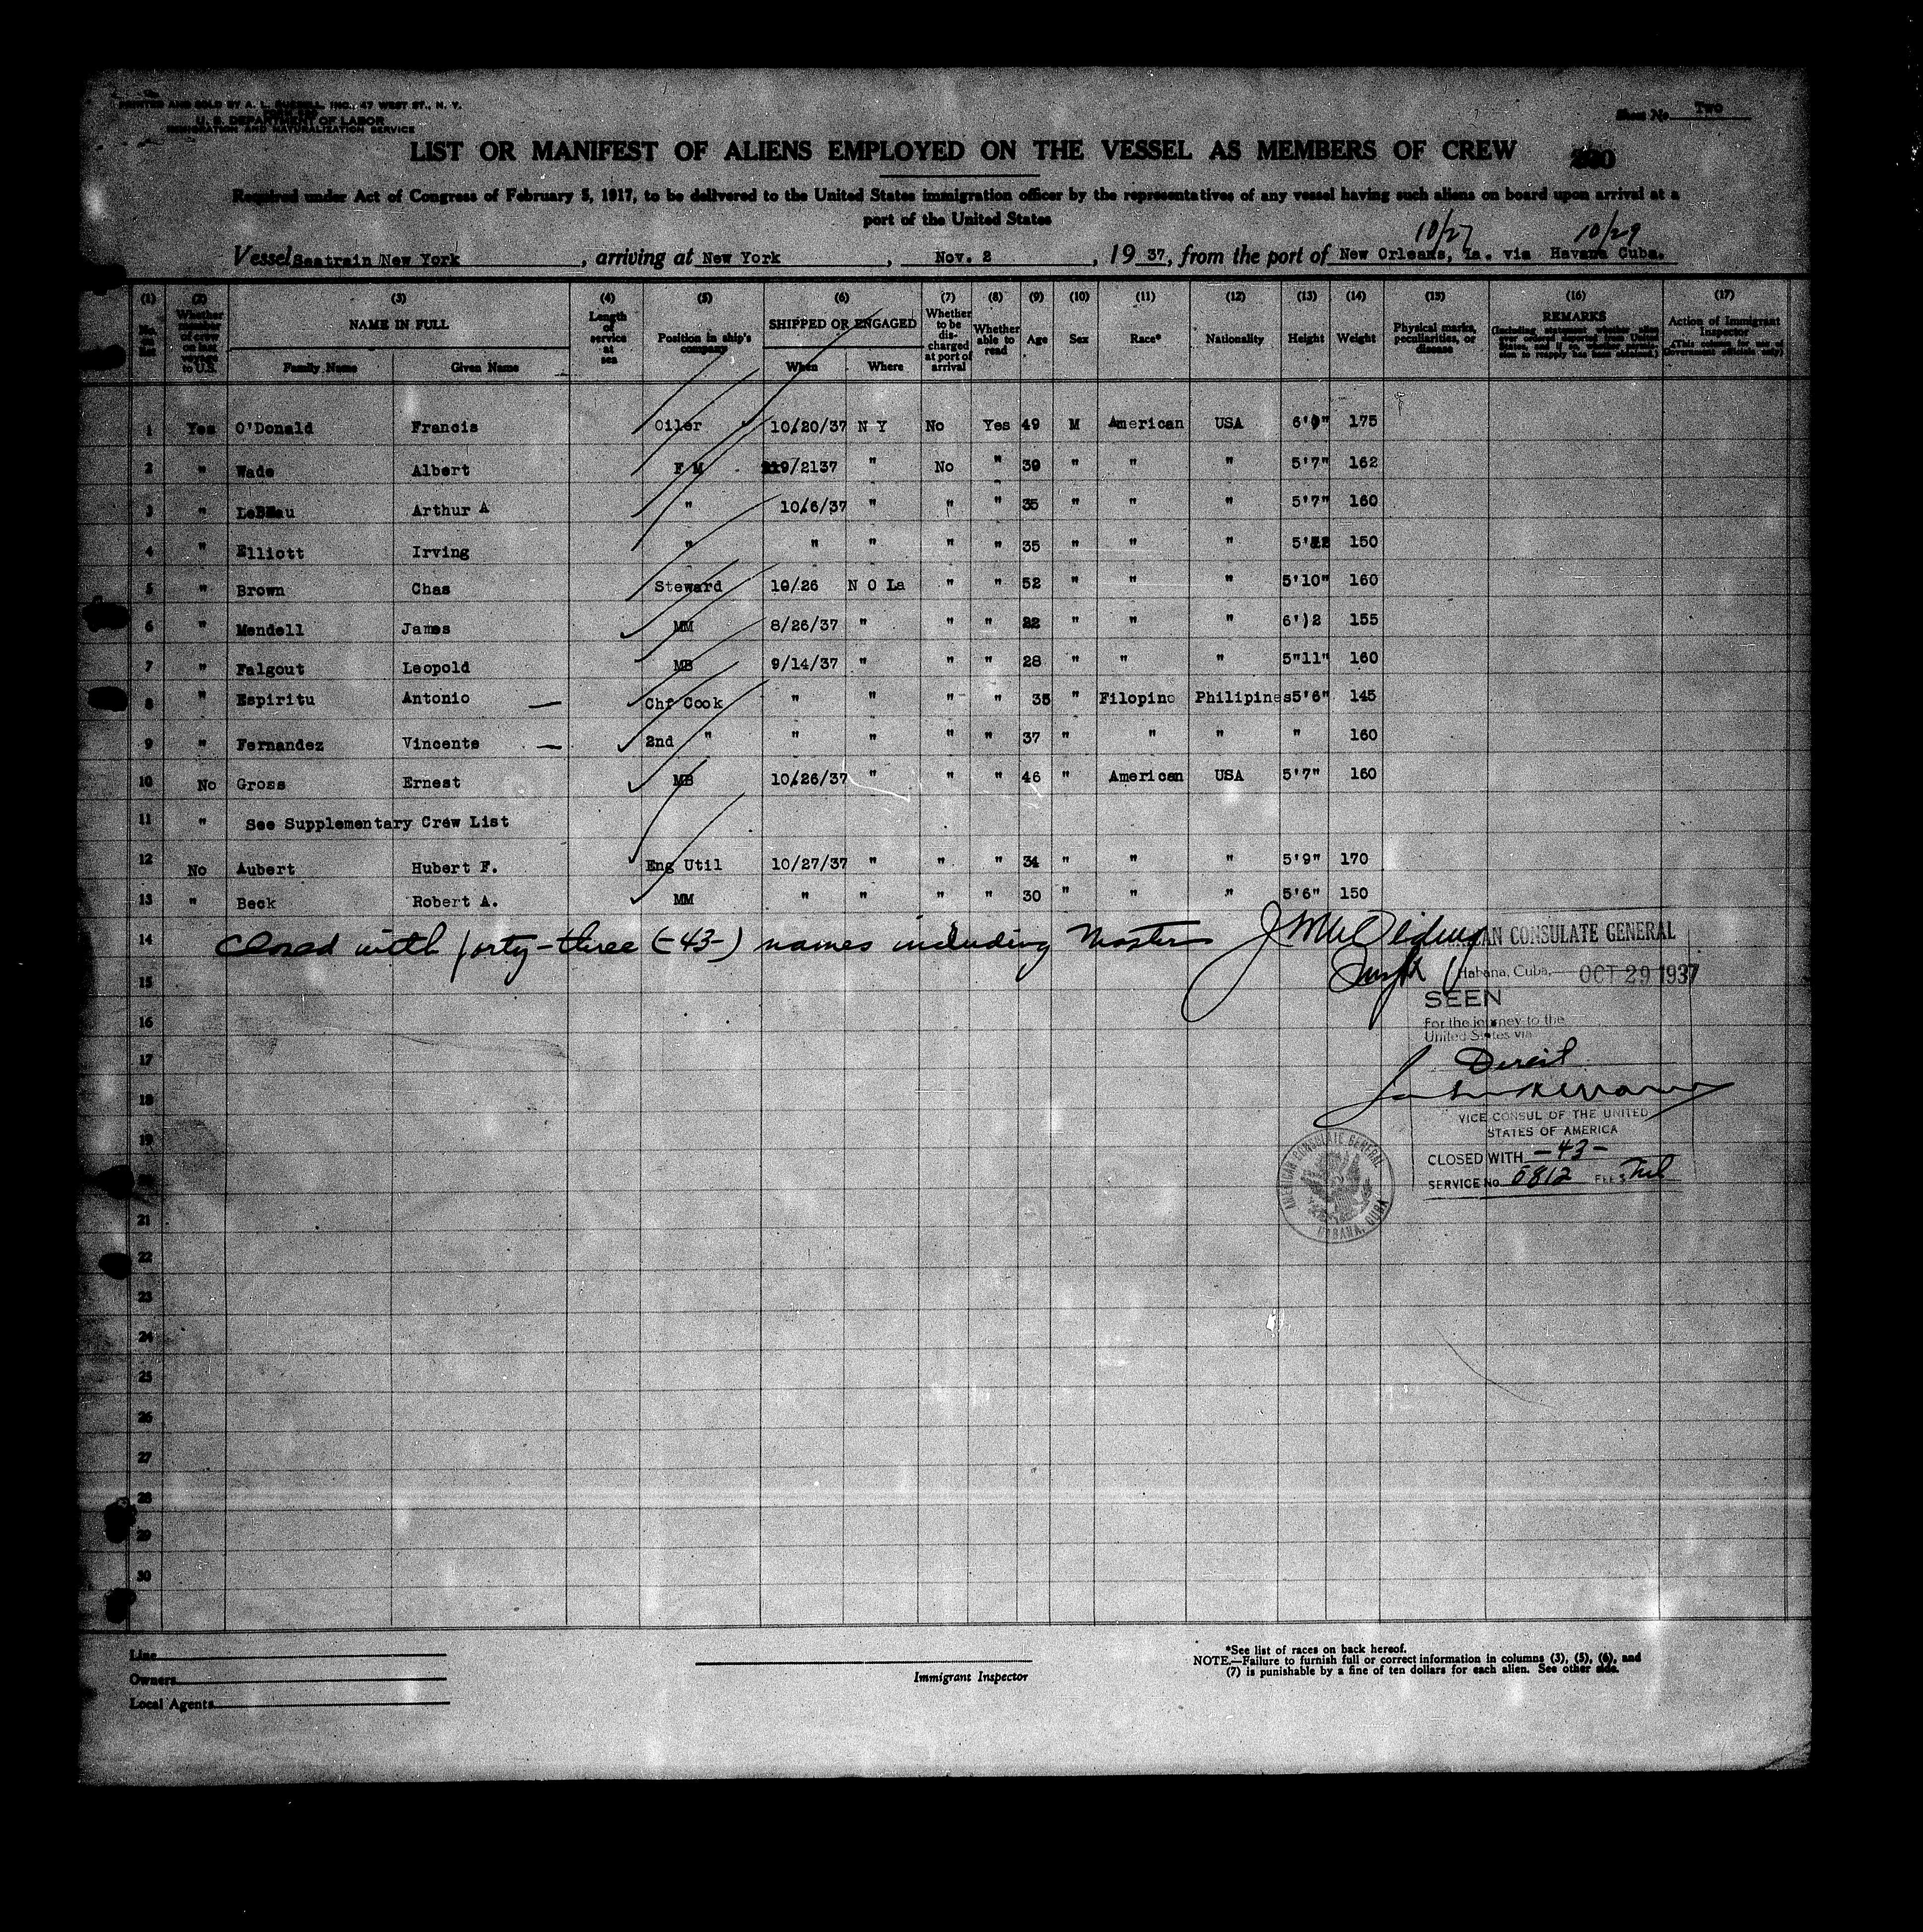 PRINTED AND SOLD BY A. L. RUSSELL, INC., 47 WEST ST., N. Y.
U. S. DEPARTMENT OF LABOR
IMMIGRATION AND NATURALIZATION SERVICE
Sheet No. Two
LIST OR MANIFEST OF ALIENS EMPLOYED ON THE VESSEL AS MEMBERS OF CREW
Required under Act of Congress of February 5, 1917, to be delivered to the United States immigration officer by the representatives of any vessel having such aliens on board upon arrival at a
port of the United States
10/27 10/29
Vessel Seatrain New York, arriving at New York, Nov. 2, 1937, from the port of New Orleans, La. via Havana Cuba.
(1) (2) (3) (4) (5) (6) (7) (8) (9) (10) (11) (12) (13) (14) (15) (16) (17)
No. on list
Whether member of crew on last voyage to U.S.
NAME IN FULL
Family Name Given Name
Length of service at sea
Position in ship's company
SHIPPED OR ENGAGED
When Where
Whether to be discharged at port of arrival
Whether able to read
Age Sex Race* Nationality Height Weight
Physical marks, peculiarities, or disease
REMARKS
(Including statement whether alien ever ordered deported from United States, and if so, whether permission to reapply has been obtained.)
Action of Immigrant Inspector
(This column for use of Government officials only)
1 Yes O'Donald Francis Oiler 10/20/37 N Y No Yes 49 M American USA 6'0" 175
2 " Wade Albert F M /2137 " No " 39 " " " 5'7" 162
3 " Arthur A " 10/6/37 " " " 35 " " " 5'7" 160
4 " Elliott Irving " " " " " 35 " " " 150
5 " Brown Chas Steward 10/26 N O La " " 52 " " " 5'10" 160
6 " Mendell James MM 8/26/37 " " " 22 " " " 6')2 155
7 " Falgout Leopold MB 9/14/37 " " " 28 " " " 5"11" 160
8 " Espiritu Antonio — Chf Cook " " " " 35 " Filopino Philipines 5'6" 145
9 " Fernandez Vincente — 2nd " " " " " 37 " " " " 160
10 No Gross Ernest MB 10/26/37 " " " 46 " American USA 5'7" 160
11 " See Supplementary Crew List
12 No Aubert Hubert F. Eng Util 10/27/37 " " " 34 " " " 5'9" 170
13 " Beck Robert A. MM " " " " 30 " " " 5'6" 150
14 Closed with forty-three (-43-) names including Master
CONSULATE GENERAL
15
Habana, Cuba, OCT 29 1937
SEEN
16
For the journey to the
United States via
17
18
VICE CONSUL OF THE UNITED
STATES OF AMERICA
19
CLOSED WITH -43-
SERVICE No. 5812 FEE $
AMERICAN CONSULATE GENERAL
HABANA, CUBA
20
21
22
23
24
25
26
27
28
29
30
Line
Owners
Local Agents
Immigrant Inspector
*See list of races on back hereof.
NOTE.—Failure to furnish full or correct information in columns (3), (5), (6), and
(7) is punishable by a fine of ten dollars for each alien. See other side.